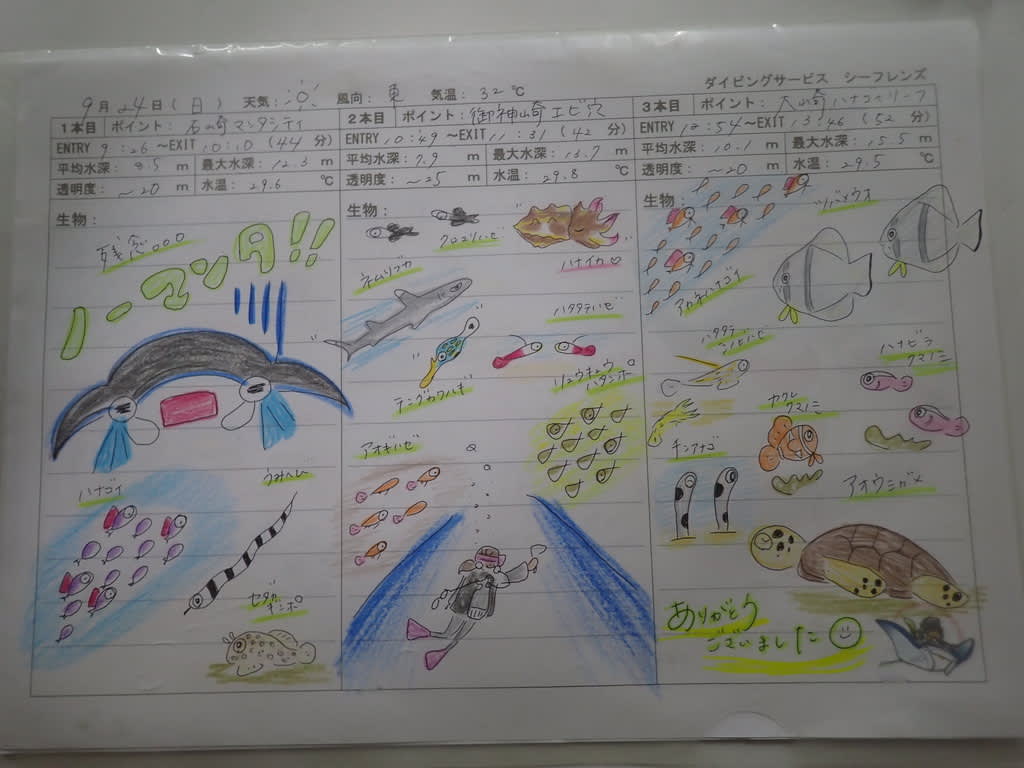 ダイビングサービス シーフレンズ
9月24日(日) 天気: 風向: 東 気温: 32℃
1本目 ポイント: 石崎マンタシティ
ENTRY 9:26~EXIT 10:10 (44分)
平均水深: 8.5 m 最大水深: 12.3 m
透明度: ~20 m 水温: 29.6 ℃
生物:
残念。。。
ノーマンタ!!
ハナゴイ
うみへび
セダカギンポ
2本目 ポイント: 御神崎エビ穴
ENTRY 10:49~EXIT 11:31 (42分)
平均水深: 7.9 m 最大水深: 13.7 m
透明度: ~25 m 水温: 29.8 ℃
生物:
クロユリハゼ
ハナイカ♡
ネムリブカ
ハタタテハゼ
テングカワハギ
リュウキュウ
ハタンポ
アオギハゼ
3本目 ポイント: 大崎ハナゴイリーフ
ENTRY 12:54~EXIT 13:46 (52分)
平均水深: 10.1 m 最大水深: 15.5 m
透明度: ~20 m 水温: 29.5 ℃
生物:
ツバメウオ
アカネハナゴイ
ハタタテ
シノビハゼ
ハナビラ
クマノミ
カクレ
クマノミ
チンアナゴ
アオウミガメ
ありがとう
ございました